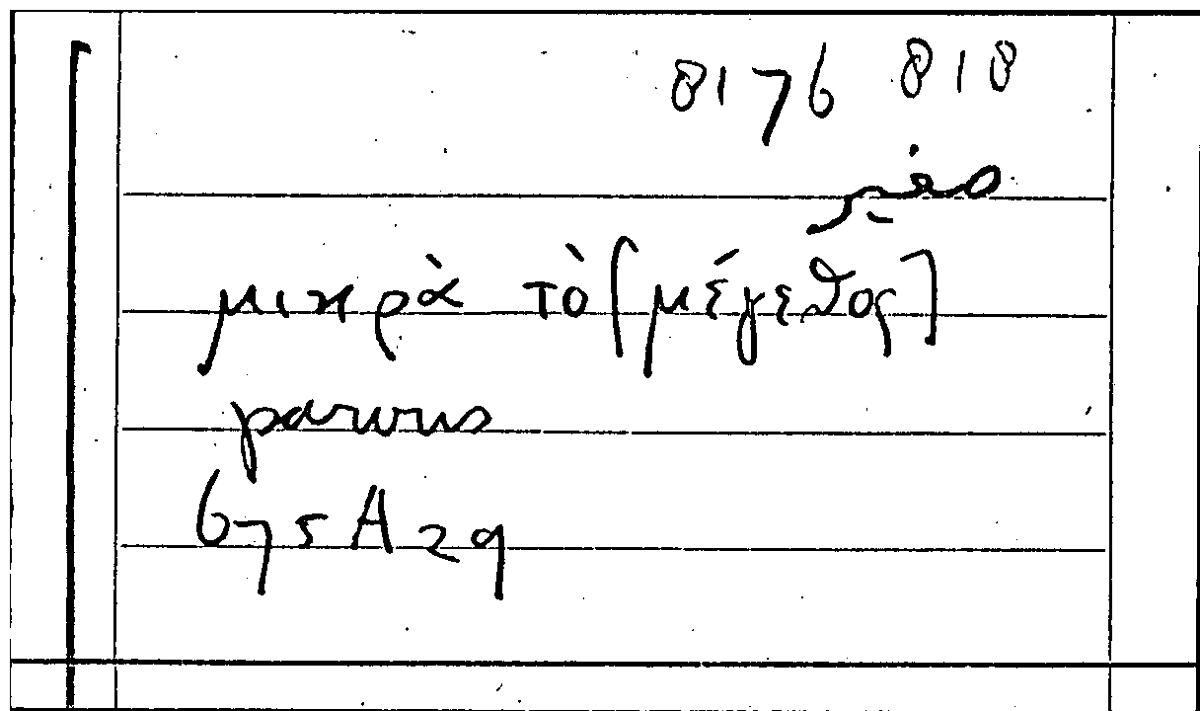 8176 818
μικρὰ τὸ [μέγεθος]
parvus
675A29